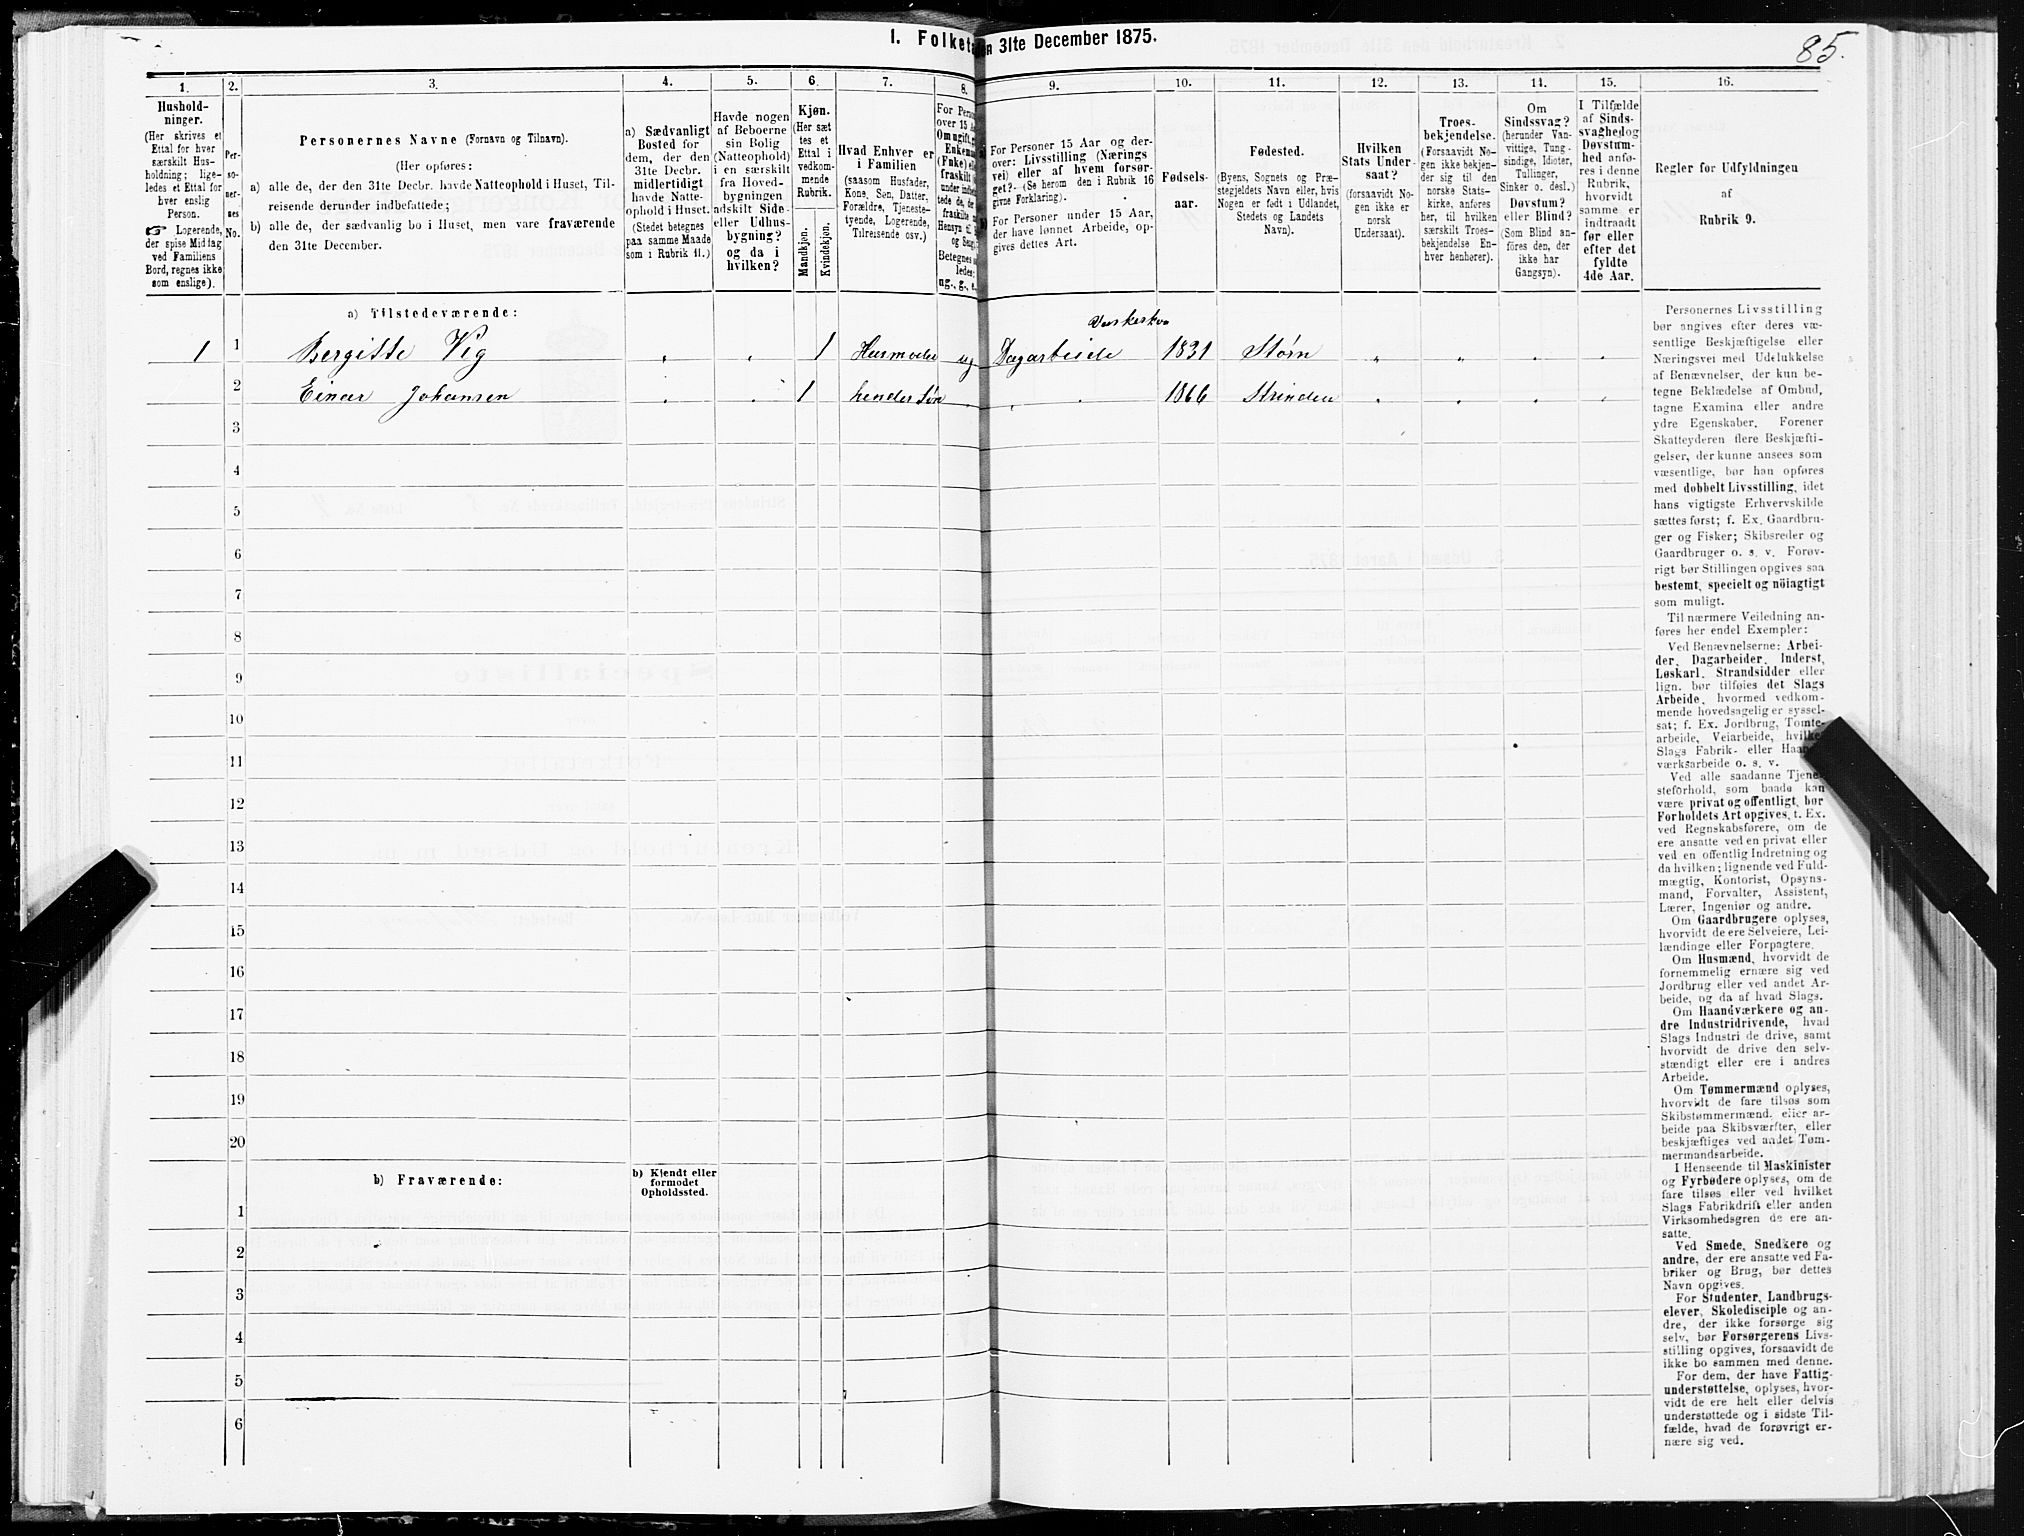 I. Folket
en 31te December 1875.
85.
1.
2.
3.
4.
5.
6.
7.
8.
9.
10.
11.
12.
13.
14.
15.
16.
Hushold-
ninger.
(Her skrives et
Ettal for hver
særskilt Hus-
holdning; lige-
ledes et Ettal for
hver enslig
Person.
☞ Logerende,
der spise Middag
ved Familiens
Bord, regnes ikke
som enslige).
Per-
so-
ner-
nes
No.
Personernes Navne (Fornavn og Tilnavn).
(Her opføres:
a) alle de, der den 31te Decbr. havde Natteophold i Huset, Til-
reisende derunder indbefattede;
b) alle de, der sædvanlig bo i Huset, men vare fraværende
den 31te December.
a) Sædvanligt
Bosted for
dem, der den
31te Decbr.
midlertidigt
havde Natte-
ophold i Huset.
(Stedet betegnes
paa samme Maade
som i Rubrik 11.)
Havde nogen
af Beboerne
sin Bolig
(Natteophold)
i en særskilt
fra Hoved-
bygningen
adskilt Side-
eller Udhus-
bygning?
og da i
hvilken?
Kjøn.
(Her sæt
tes et
Ettal i
vedkom-
mende
Rubrik.
Mandkjøn.
Kvindekjøn.
Hvad Enhver er
i Familien
(saasom Husfader,
Kone, Søn, Datter,
Forældre, Tjeneste-
tyende, Logerende,
Tilreisende osv.)
For Perso
over 15 A
Om ugift,
Enkem
(Enke) e
fraskilt
under indbe
tede de, de
fraskilte
Hensyn til
og Seng
Betegnes
ledes:
ug., g., e.
For Personer 15 Aar og der-
over: Livsstilling (Nærings
vei) eller af hvem forsør-
get? (Se herom den i Rubrik 16
givne Forklaring).
For Personer under 15 Aar,
der have lønnet Arbeide, op-
gives dettes Art.
Fødsels-
aar.
Fødested.
(Byens, Sognets og Præ-
stegjeldets Navn eller, hvis
Nogen er født i Udlandet,
Stedets og Landets
Navn).
Hvilken
Stats Under-
saat?
(forsaavidt No-
gen ikke er
norsk
Undersaat).
Troes-
bekjendelse.
(Forsaavidt No-
gen ikke bekjen-
der sig til den
norske Stats-
kirke, anføres
her, til hvilken
særskilt Troes-
bekjendelse En-
hver henhører).
Om
Sindssvag?
(herunder Van-
vittige, Tung-
sindige, Idioter,
Tullinger,
Sinker o. desl.)
Døvstum?
eller Blind?
(Som Blind an-
føres den, der
ikke har
Gangsyn).
I Tilfælde
af Sinds-
svaghed og
Døvstum-
hed anfø-
res i denne
Rubrik,
hvorvidt
samme er
indtraadt
før eller
efter det
fyldte
4de Aar.
Regler for Udfyldningen
af
Rubrik 9.
a) Tilstedeværende:
Vaskesko
1 1 Bergitte Vig " " 1 Husmoder ug Dagarbeide 1831 Støren " " " "
2 Einar Johansen " " 1 hendes Søn " " " 1866 Strinden " " " "
3
4
5
6
7
8
9
10
11
12
13
14
15
16
17
18
19
20
b) Fraværende:
b) Kjendt eller
formodet
Opholdssted.
1
2
3
4
5
6
Personernes Livsstilling
bør angives efter deres væ-
sentlige Beskjæftigelse eller
Næringsvei med Udelukkelse
af Benævnelser, der kun be-
tegne Beklædelse af Ombud,
tagne Examina eller andre
ydre Egenskaber. Forener
Skatteyderen flere Beskjæfti-
gelser, der kunne ansees som
væsentlige, bør han opføres
med dobbelt Livsstilling, idet
hans vigtigste Erhvervskilde
sættes først; f. Ex. Gaardbru-
ger og Fisker; Skibsreder og
Gaardbruger o. s. v. Forøv-
rigt bør Stillingen opgives saa
bestemt, specielt og nöiagtigt
som muligt.
Til nærmere Veiledning an-
føres her endel Exempler:
Ved Benævnelserne: Arbei-
der, Dagarbeider, Inderst,
Løskarl, Strandsidder eller
lign. bør tilføies det Slags
Arbeide, hvormed vedkom-
mende hovedsagelig er syssel-
sat; f. Ex. Jordbrug, Tomte-
arbeide, Veiarbeide, hvilke
Slags Fabrik- eller Haand-
værksarbeide o. s. v.
Ved alle saadanne Tjene-
steforhold, som baade kan
være privat og offentligt, bør
Forholdets Art opgives, f. Ex.
ved Regnskabsførere, om de
ere ansatte ved en privat eller
ved en offentlig Indretning og
da hvilken; lignende ved Fuld-
mægtig, Kontorist, Opsyns-
mand, Forvalter, Assistent,
Lærer, Ingeniør og andre.
Om Gaardbrugere oplyses,
hvorvidt de ere Selveiere, Lei-
lændinge eller Forpagtere.
Om Husmænd, hvorvidt de
fornemmelig ernære sig ved
Jordbrug eller ved andet Ar-
beide, og da af hvad Slags.
Om Haandværkere og an-
dre Industridrivende, hvad
Slags Industri de drive, samt
hvorvidt de drive den selv-
stændigt eller ere i andres
Arbeide.
Om Tømmermænd oplyses,
hvorvidt de fare tilsøs som
Skibstømmermænd, eller ar-
beide paa Skibsværfter, eller
beskjæftiges ved andet Tøm-
mermandsarbeide.
I Henseende til Maskinister
og Fyrbødere oplyses, om de
fare tilsøs eller ved hvilket
Slags Fabrikdrift eller anden
Virksomhedsgren de ere an-
satte.
Ved Smede, Snedkere og
andre, der ere ansatte ved Fa-
briker og Brug, bør dettes
Navn opgives.
For Studenter, Landbrugs-
elever, Skoledisciple og an-
dre, der ikke forsørge sig
selv, bør Forsørgerens Livs-
stilling opgives, forsaavidt de
ikke bo sammen med denne.
For dem, der have Fattig-
understøttelse, oplyses, hvor-
vidt de ere helt eller delvis
understøttede og i sidste Til-
fælde, hvad de forøvrigt er-
nære sig ved.